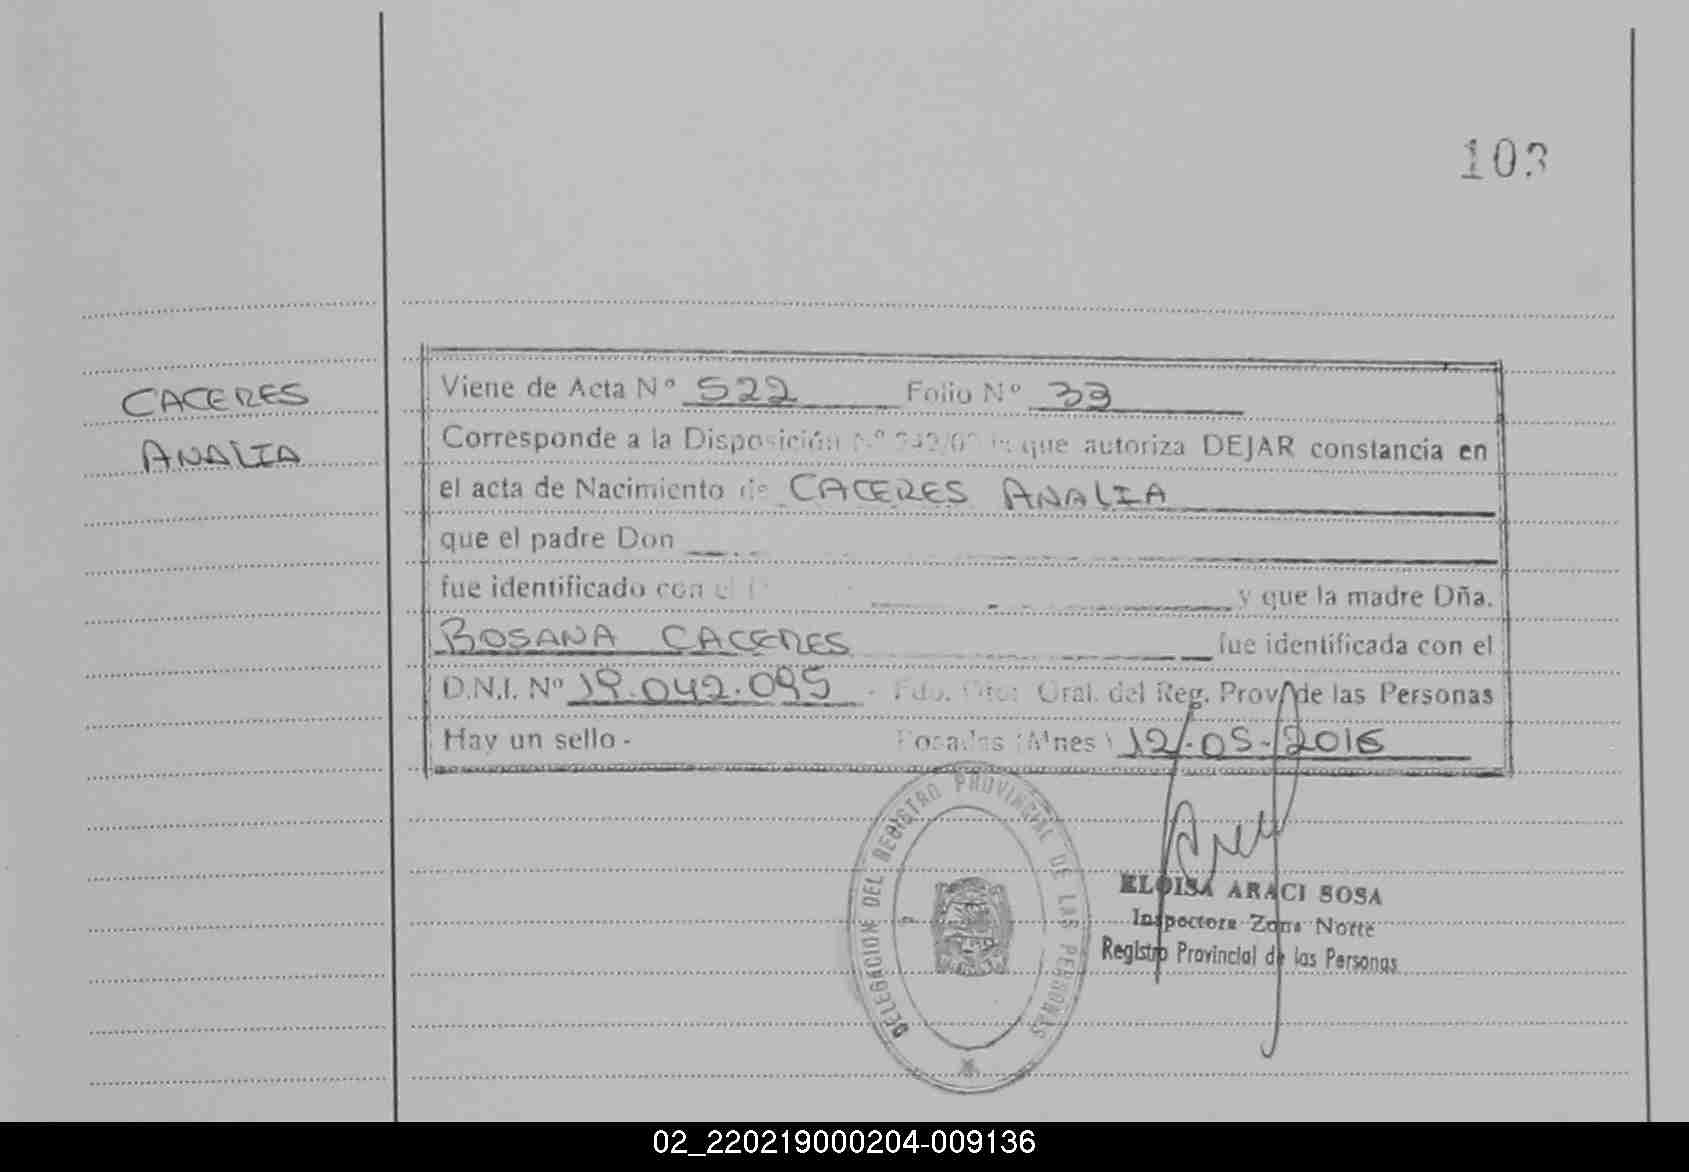 103
CACERES
ANALIA
Viene de Acta Nº 522 Folio Nº 33
Corresponde a la Disposición Nº 542/0 que autoriza DEJAR constancia en
el acta de Nacimiento de CACERES ANALIA
que el padre Don
fue identificado con el y que la madre Dña.
ROSANA CACERES fue identificada con el
D.N.I. Nº 19.042.095 - Fdo. Gral. del Reg. Prov. de las Personas
Hay un sello - Posadas (Mnes) 12-05-2016
DELEGACION DEL REGISTRO PROVINCIAL DE LAS PERSONAS
ELOISA ARACI SOSA
Inspectora Zona Norte
Registro Provincial de las Personas
02_220219000204-009136